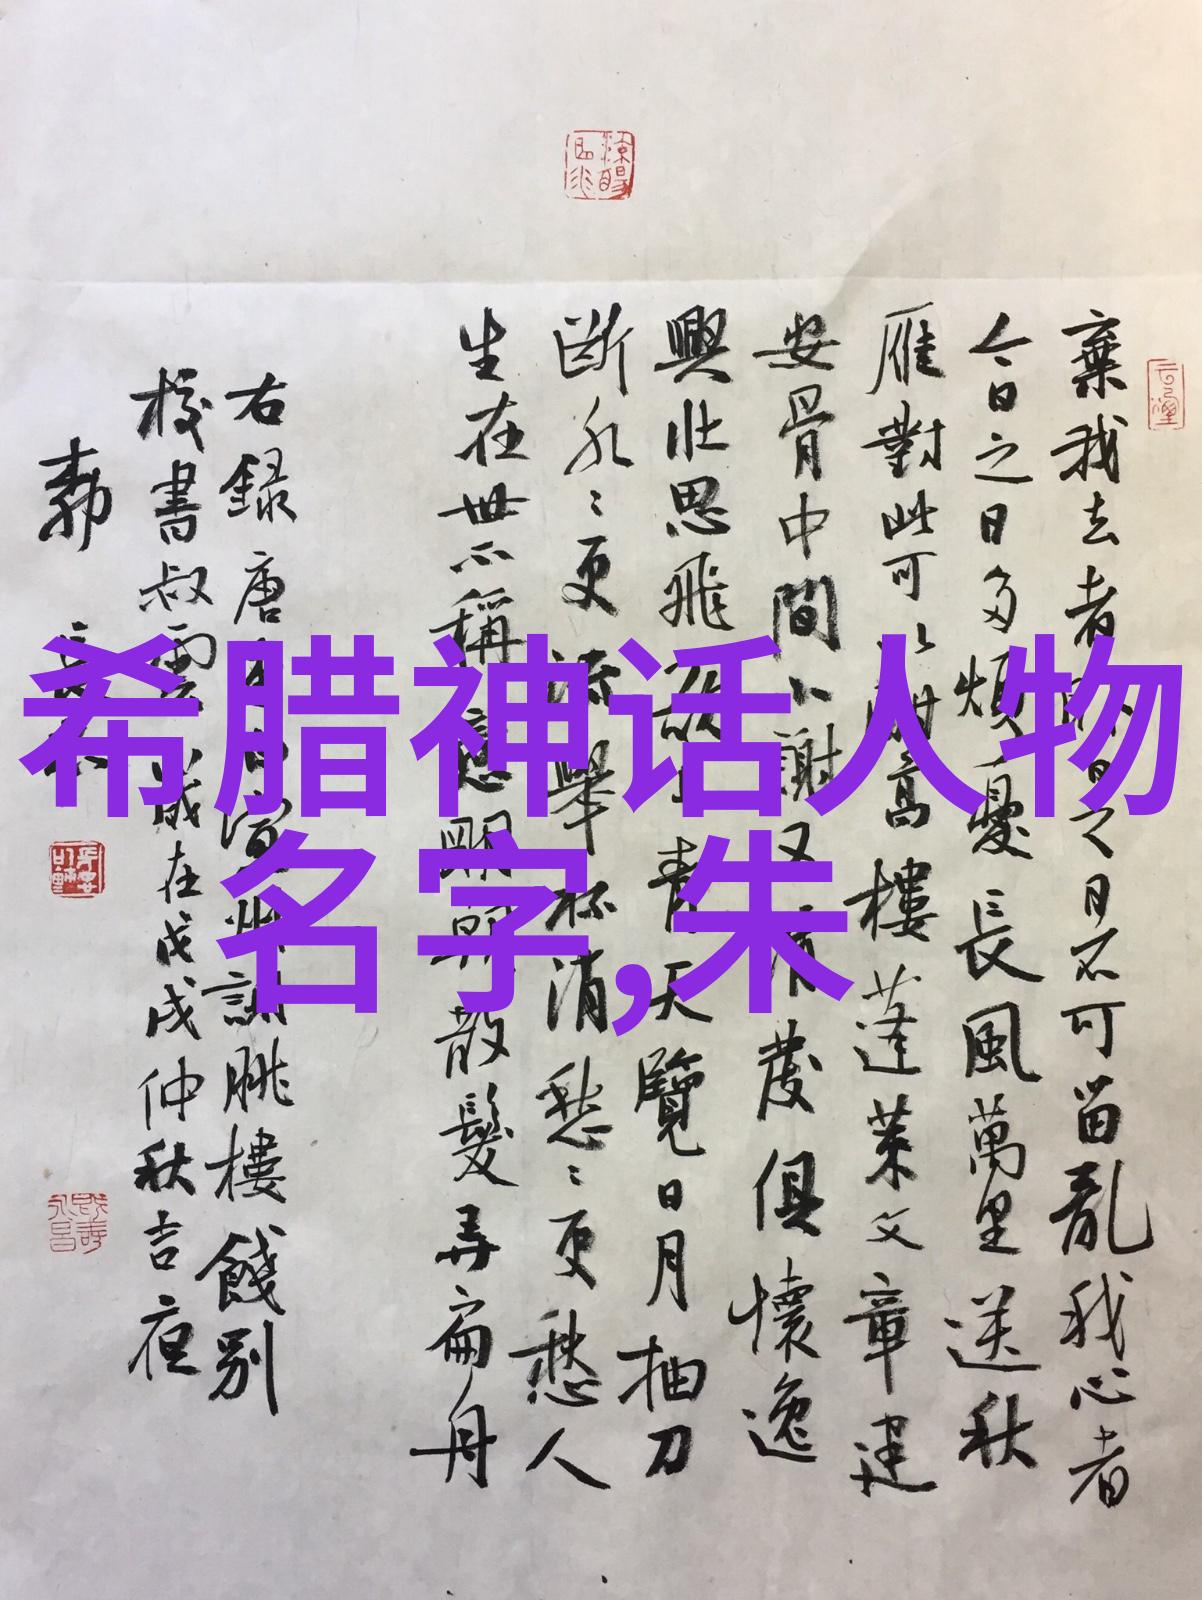 希腊神话人物
名字,朱
棄我去者昨日之日不可留亂我心者
今日之日多煩憂長風萬里送秋
雁對此可以酣高樓蓬萊文章建
安骨中間小謝又清發俱懷逸
興壯思飛欲上青天覽日月抽刀
斷水〻更流舉杯消愁〻更愁人
生在世不稱意明朝散髮弄扁舟
右錄唐李白宣州謝朓樓餞別
校書叔雲歲在戊戌仲秋吉夜